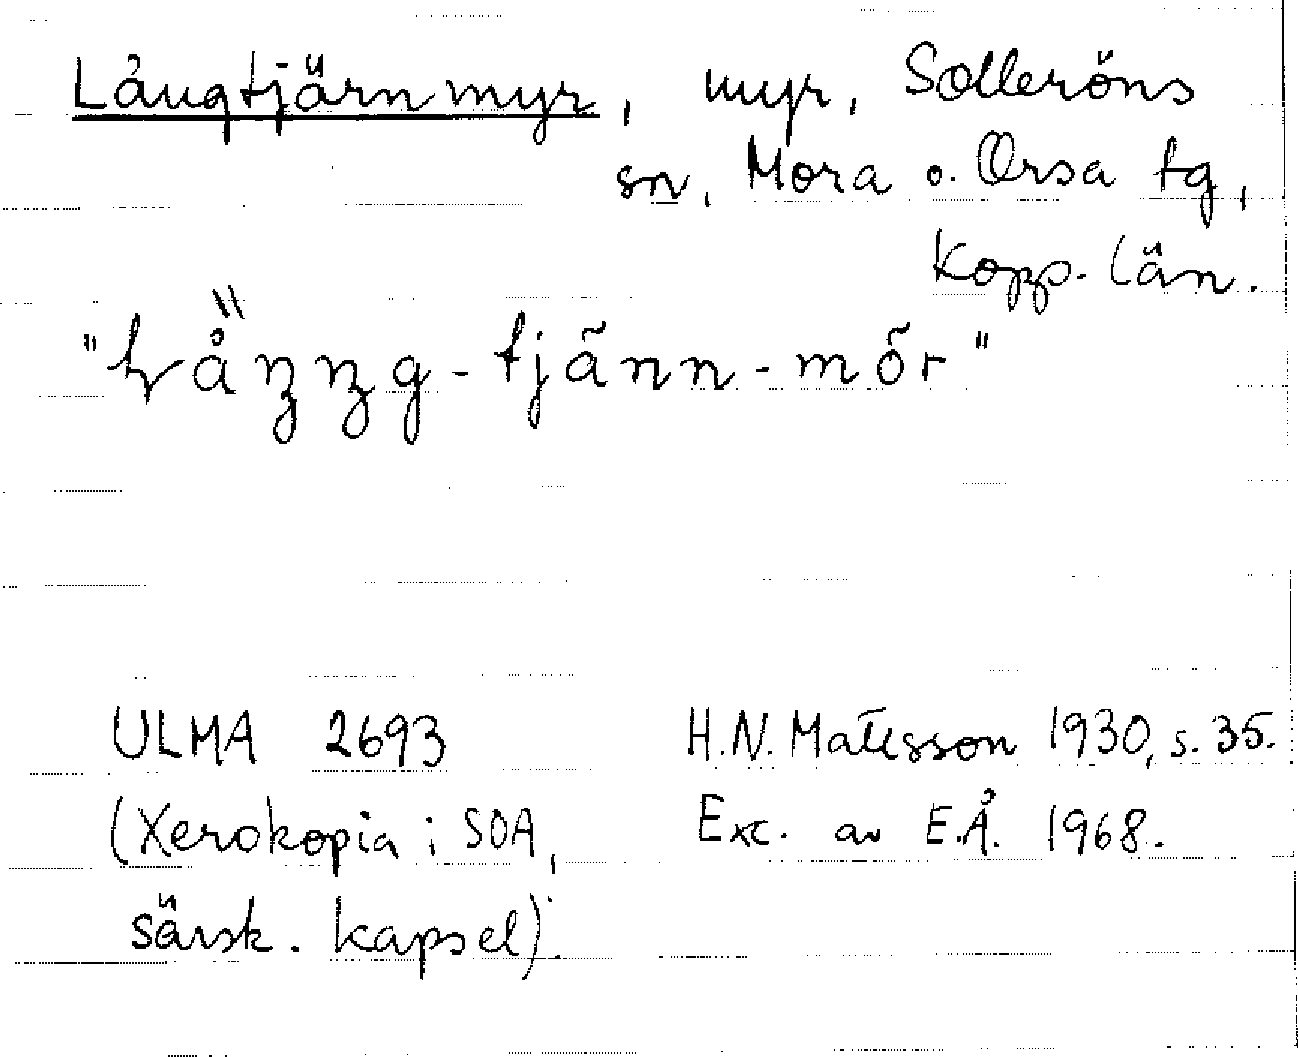 Långtjärnmyr, myr, Solleröns
sn, Mora o. Orsa tg,
Kopp. län.
tjãnn-mõr"
ULMA 2693 H.N. Matsson 1930, s. 35.
(Xerokopia i SOA, Exc. av E.Å. 1968.
särsk. kapsel).